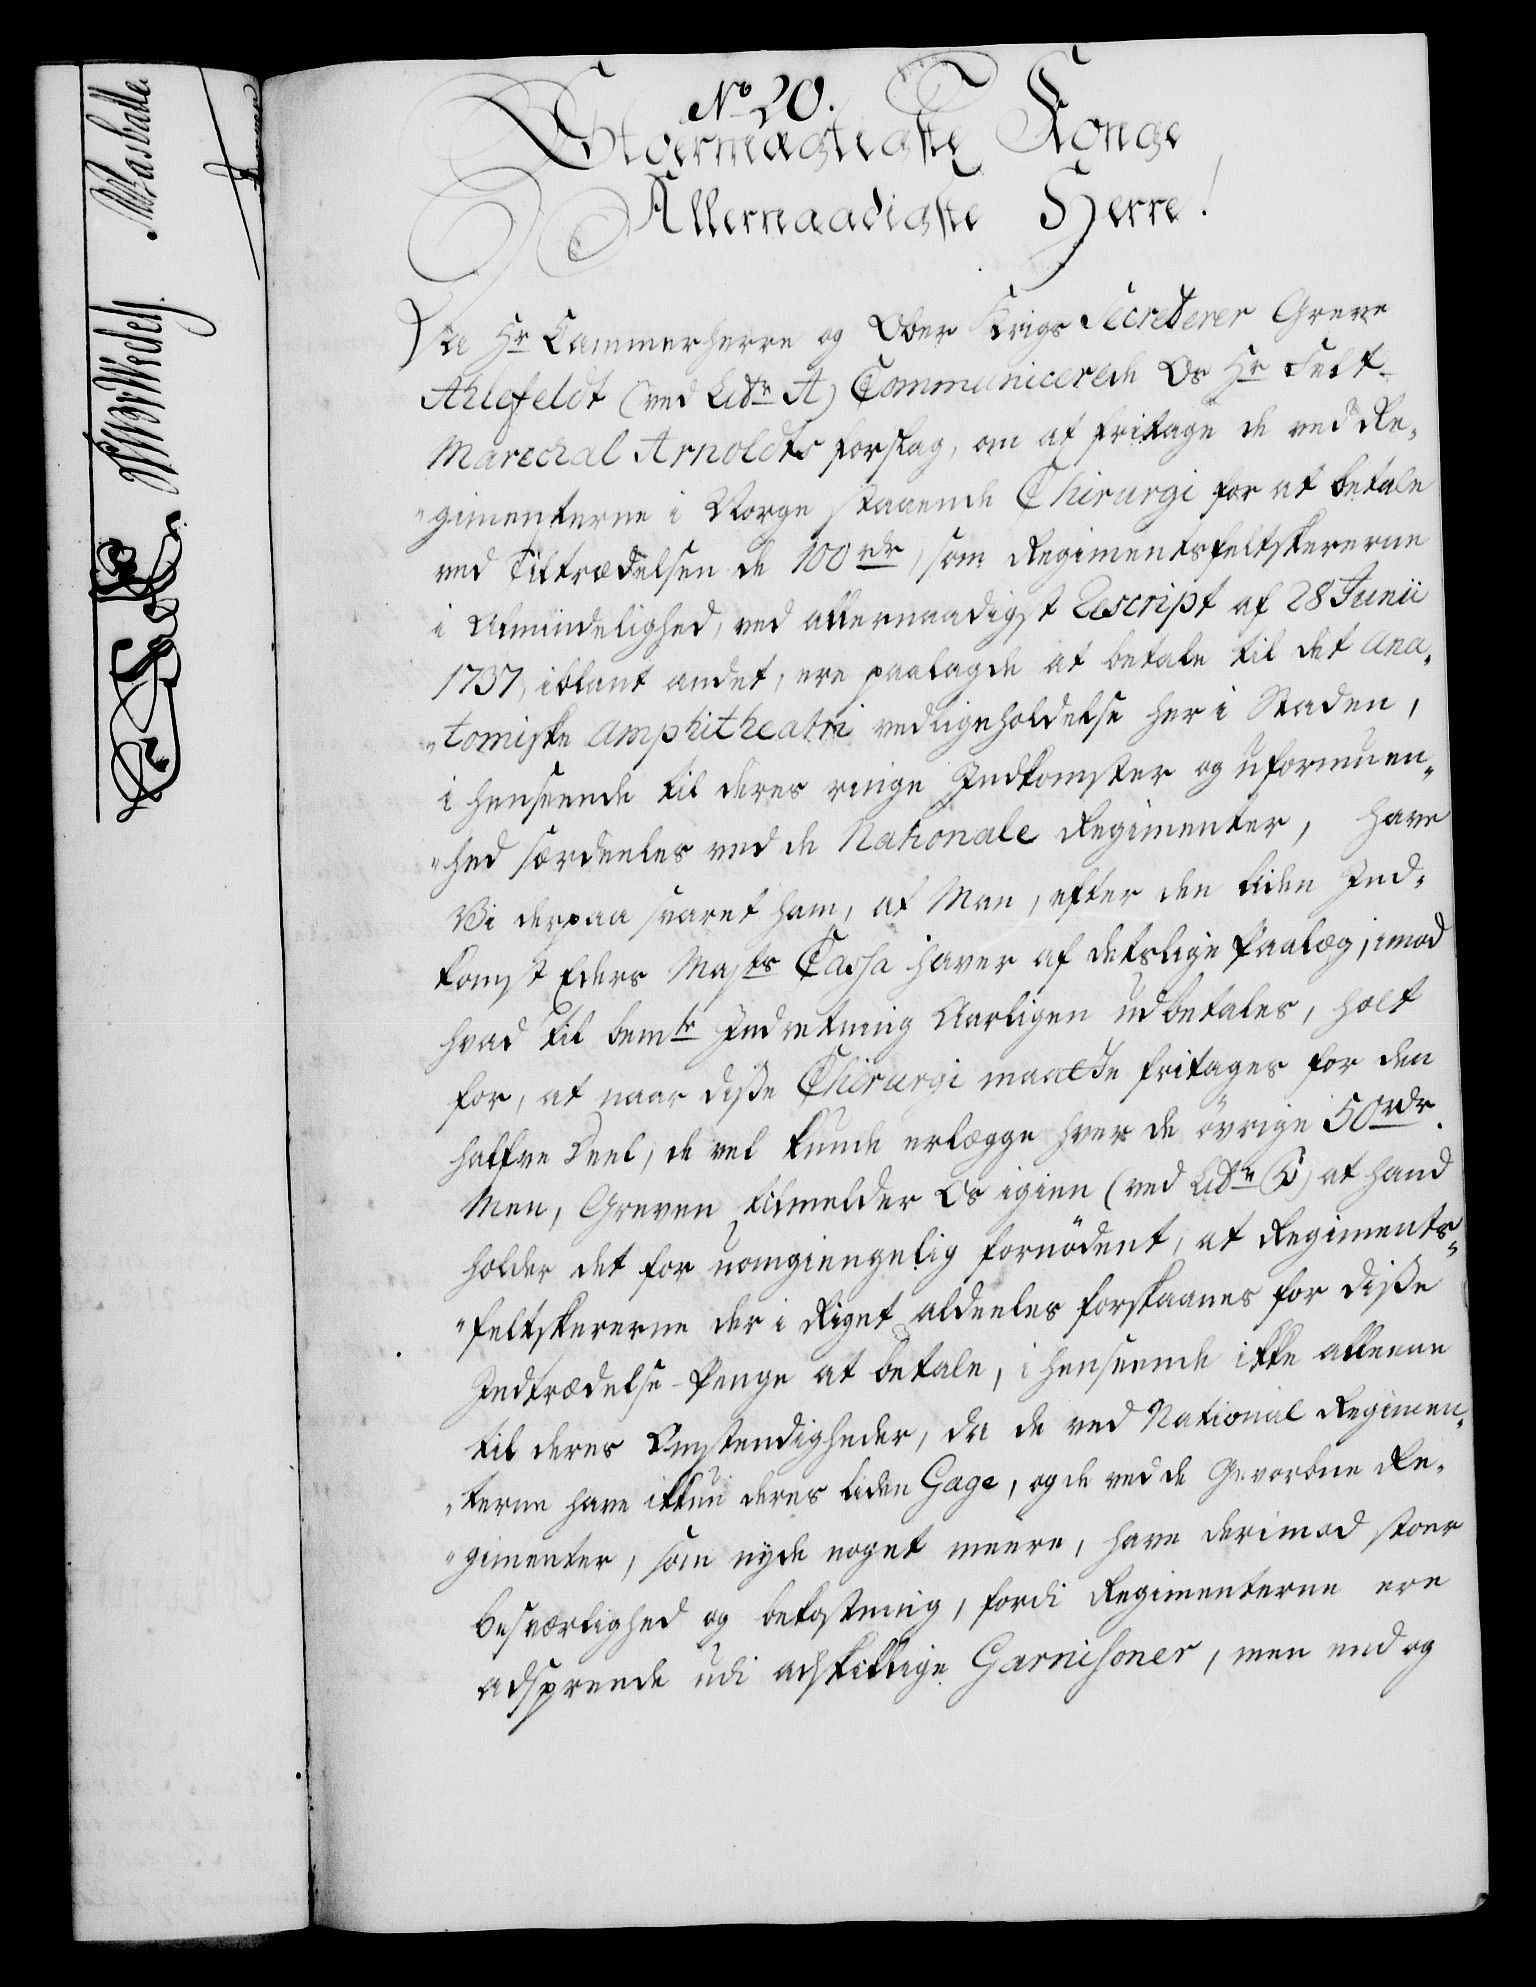 No 20.
Stormægtigste Konge
Allernaadigste Herre!
Da Hr Cammerherre og Ober Krigs Secreterer Greve
Ahlefeldt (ved Littr A) Communicerede Os Hr Felt-
Marechal Arnoldts forslag, om at fritage de ved Re-
"gimenterne i Norge staaende Chirurgi for at betale
ved Tiltrædelsen de 100 rdr, som Regimentsfeltskererne
i Almindelighed, ved allernaadigst Rescript af 28 Junii
1737, iblant andet, ere paalagde at betale til det Ana-
"tomiske Amphitheatri vedligeholdelse her i Staden,
i henseende til deres ringe Indkomster og uformuen-
"hed særdeeles ved de Nationale Regimenter, have
Vi derpaa svaret ham, at Man, efter den liden Ind-
komst Eders Majts Cassa haver af detslige Paalæg, imod
hvad til bemte Indretning Aarligen udbetales, holt
for, at naar disse Chirurgi maatte fritages for den
halfve Deel, de vel kunde erlegge hver de øvrige 50 rdr.
Men, Greven tilmelder Os igien (ved Littr ) at hand
holder det for uomgiengelig fornødent, at Regiments-
"feltskererne der i Riget aldeeles forskaanes for disse
Indtrædelse-Penge at betale, i henseende ikke alleene
til deres Omstendigheder, da de ved National Regimen-
"terne have ikkun deres liden Gage, og de ved de Gevorbne Re-
"gimenter, som nyde noget meere, have derimod stoer
besværlighed og bekostning, fordi Regimenterne ere
adspreede udi adskillige Garnisoner, men end og